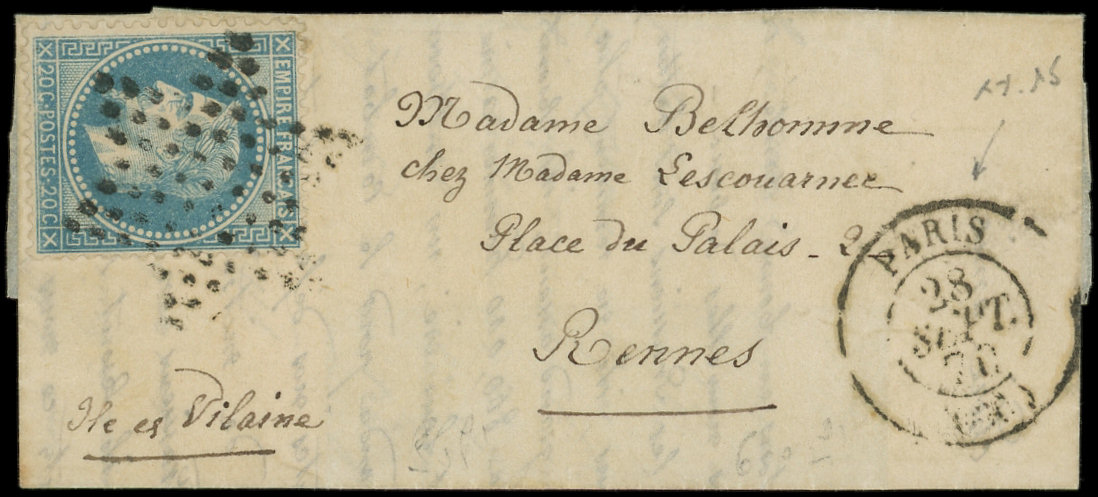 EMPIRE FRANÇAIS
20C·POSTES·20C
Madame Belhomme
chez Madame Lescouarnec
Place du Palais - 2
Rennes
Ile et Vilaine
PARIS
28
SEPT.
70